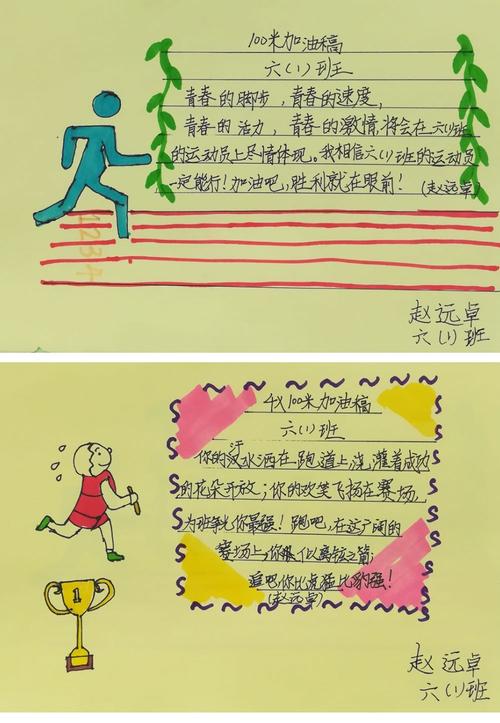 100米加油稿
六(1)班
青春的脚步,青春的速度,
青春的活力,青春的激情,将会在六(1)班
的运动员上尽情体现。我相信六(1)班的运动员
一定能行!加油吧,胜利就在眼前!(赵远卓)
1234
赵远卓
六(1)班
4X100米加油稿
六(1)班
你的汗水洒在跑道上,浇灌着成功
的花朵开放;你的欢笑飞扬在赛场,
为班争光你最强!跑吧,在这广阔的
赛场上,你似离弦之箭
追吧,你比虎猛比豹强!
(赵远卓)
1
赵远卓
六(1)班